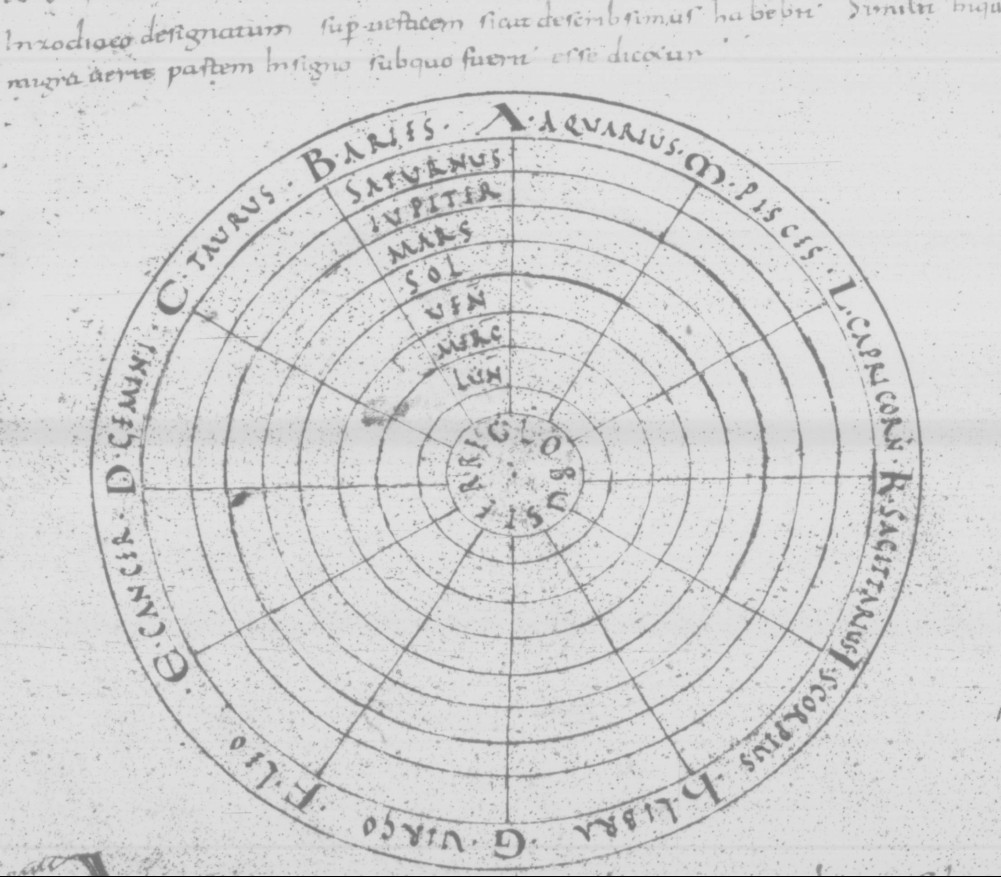 In zodiaco designatum sup verticem sicut describsimus habebit Simili
nigra aeris partem In signo subquo fuerit esse dicatur
A · AQUARIUS · M · PISCIS · L · CAPRICORN K · SAGITTARIUS I SCORPIUS · H · LIBRA
G · VIRGO F · LEO · E · CANCER · D · GEMINI · C · TAURUS · B · ARIES ·
SATURNUS
IUPITER
MARS
SOL
VEN
MERC
LUN
GLOBUS TERRE